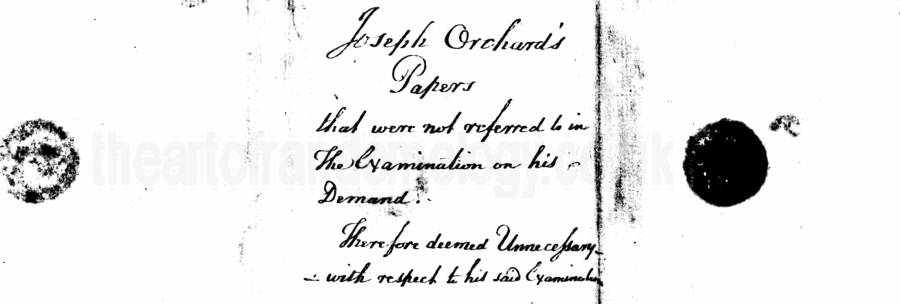 Joseph Orchard's
Papers
that were not referred to in
The Examination on his
Demand.
Therefore deemed Unnecessary
with respect to his said Examination